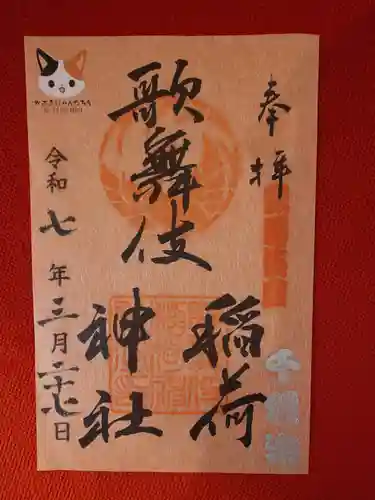 奉拝
歌舞伎
稲荷
神社
令和七年三月二十七日
千穐楽